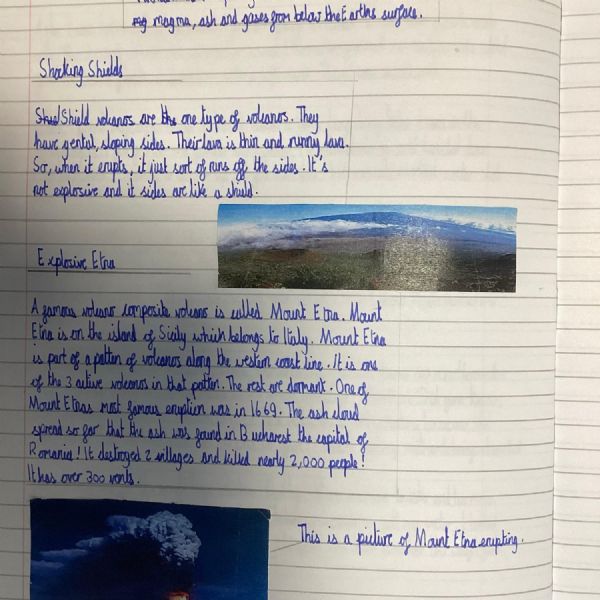 mg magma, ash and gases from below the Earths surface.
Shocking Shields
Shield volcanos are the one type of volcanos. They
have gental, sloping sides. Their lava is thin and runny lava.
So, when it erupts, it just sort of runs off the sides. It's
not explosive and it sides are like a shield.
Explosive Etna
A famous volcano composite volcano is called Mount Etna. Mount
Etna is on the island of Sicily which belongs to Italy. Mount Etna
is part of a patton of volcanos along the western coast line. It is one
of the 3 active volcanos in that patton. The rest are dormant. One of
Mount Etnas most famous eruption was in 1669. The ash cloud
spread so far that the ash was found in Bucharest the capital of
Romania! It destroyed 2 villages and killed nearly 2,000 people!
It has over 300 vents.
This is a picture of Mount Etna erupting.